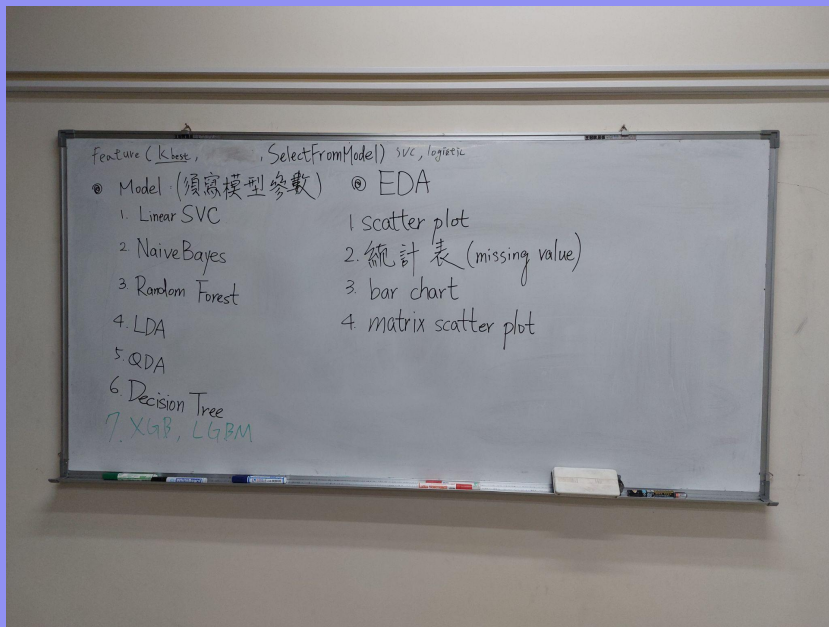 Feature (K best, , SelectFromModel) SVC, logistic
◎ Model (須寫模型參數)
1. Linear SVC
2. NaiveBayes
3. Random Forest
4. LDA
5. QDA
6. Decision Tree
7. XGB, LGBM
◎ EDA
1 scatter plot
2. 統計表 (missing value)
3. bar chart
4. matrix scatter plot